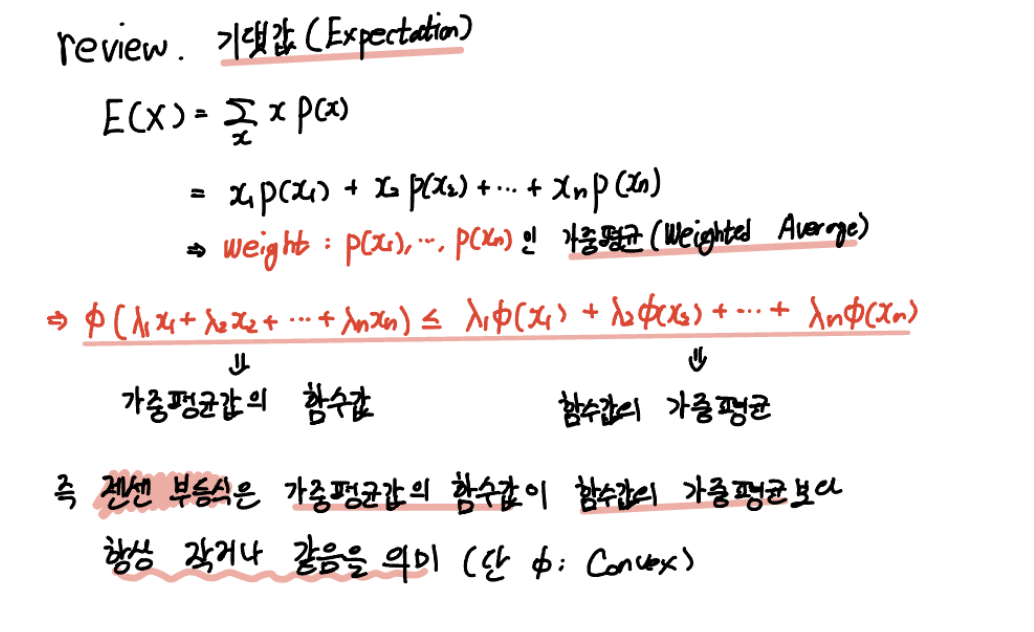 review. 기댓값 (Expectation)
E(X) = Σ x p(x)
x
= x₁p(x₁) + x₂p(x₂) + ⋯ + xₙp(xₙ)
⇒ weight : p(x₁), ⋯, p(xₙ) 인 가중평균 (Weighted Average)
⇒ ϕ(λ₁x₁ + λ₂x₂ + ⋯ + λₙxₙ) ≤ λ₁ϕ(x₁) + λ₂ϕ(x₂) + ⋯ + λₙϕ(xₙ)
⇓ ⇓
가중평균값의 함수값 함수값의 가중평균
즉 젠센 부등식은 가중평균값의 함수값이 함수값의 가중평균보다
항상 작거나 같음을 의미 (단 ϕ: Convex)